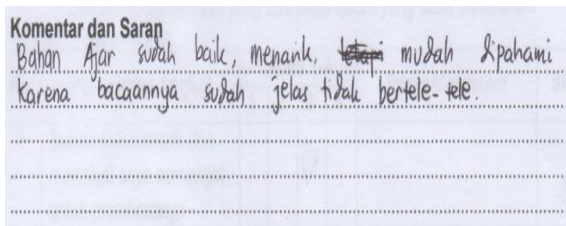 Komentar dan Saran
Bahan Ajar sudah baik, menarik, mudah dipahami
Karena bacaannya sudah jelas tidak bertele-tele.